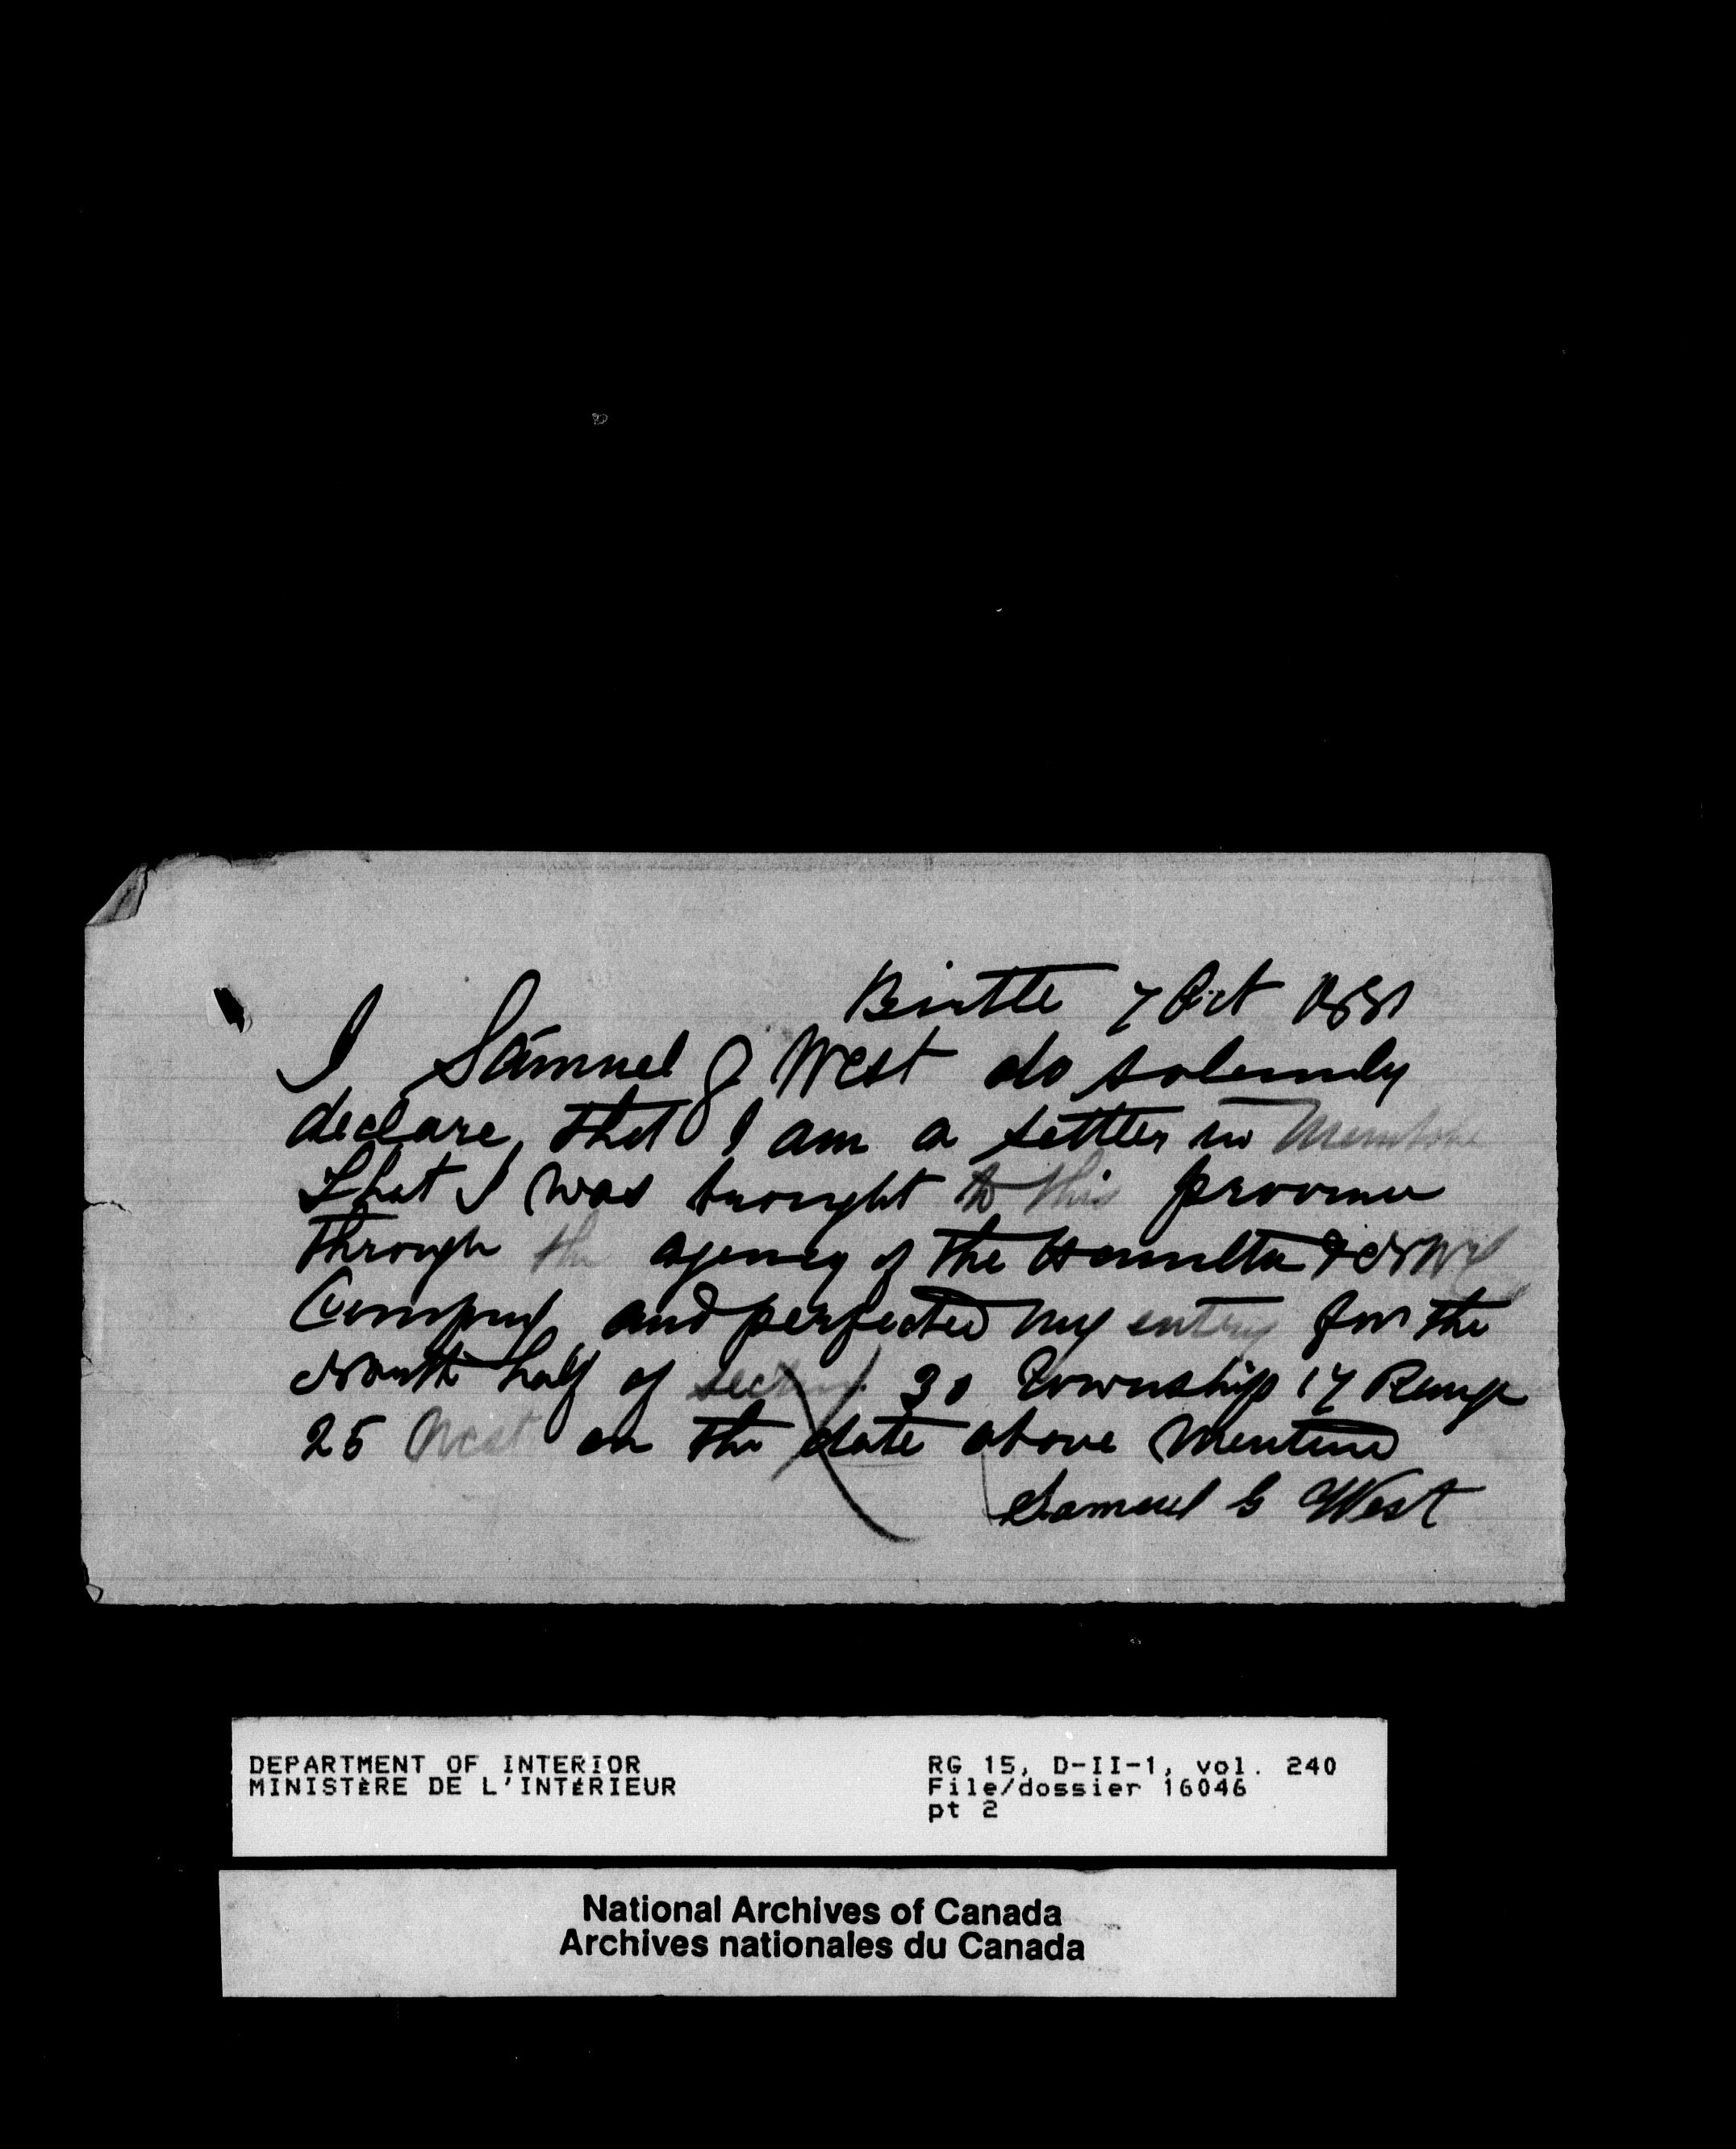 Birtle 7 Oct 1881
I Samuel G West do solemnly
declare, that I am a settler in Manitoba
That I was brought to this province
through the agency of the Hamilton & NW
Company and perfected my entry for the
North half of section 30 Township 17 Range
25 West on the date above mentioned
Samuel G West
DEPARTMENT OF INTERIOR
MINISTÈRE DE L'INTÉRIEUR
RG 15, D-II-1, vol. 240
File/dossier 16046
pt 2
National Archives of Canada
Archives nationales du Canada